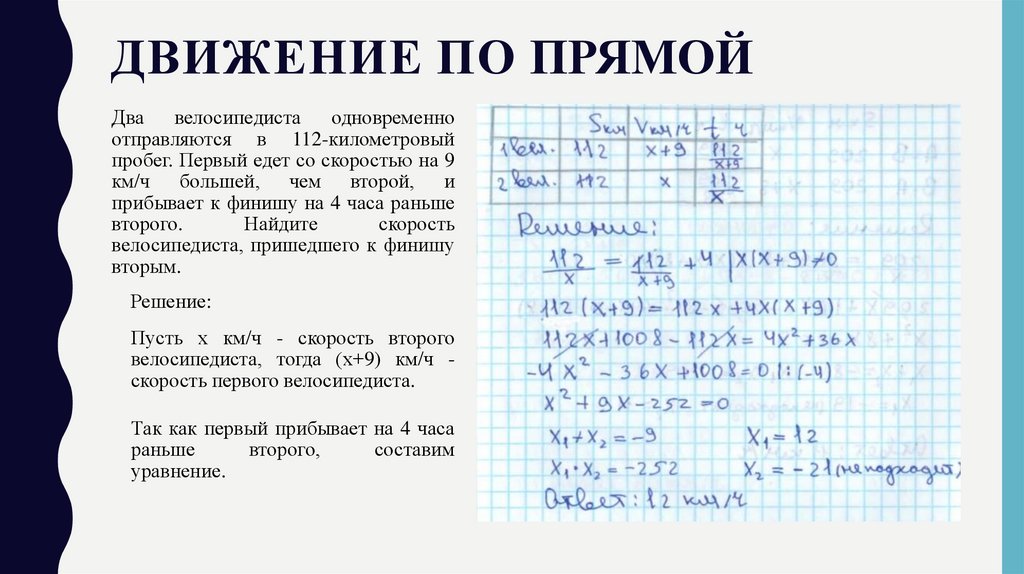 ДВИЖЕНИЕ ПО ПРЯМОЙ
Два велосипедиста одновременно
отправляются в 112-километровый
пробег. Первый едет со скоростью на 9
км/ч большей, чем второй, и
прибывает к финишу на 4 часа раньше
второго. Найдите скорость
велосипедиста, пришедшего к финишу
вторым.
Решение:
Пусть х км/ч - скорость второго
велосипедиста, тогда (х+9) км/ч -
скорость первого велосипедиста.
Так как первый прибывает на 4 часа
раньше второго, составим
уравнение.
Sкм Vкм/ч t ч
1 вел. 112 x+9 112/x+9
2 вел. 112 x 112/x
Решение:
112/x = 112/x+9 + 4 | x(x+9)≠0
112(x+9) = 112x + 4x(x+9)
112x + 1008 - 112x = 4x² + 36x
-4x² - 36x + 1008 = 0 | : (-4)
x² + 9x - 252 = 0
x₁ + x₂ = -9 x₁ = 12
x₁ · x₂ = -252 x₂ = -21 (не подходит)
Ответ: 12 км/ч